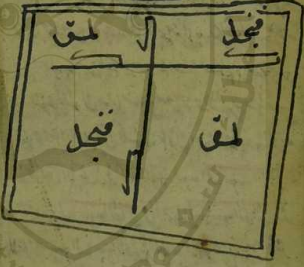 فنجل لمق
لمق فنجل